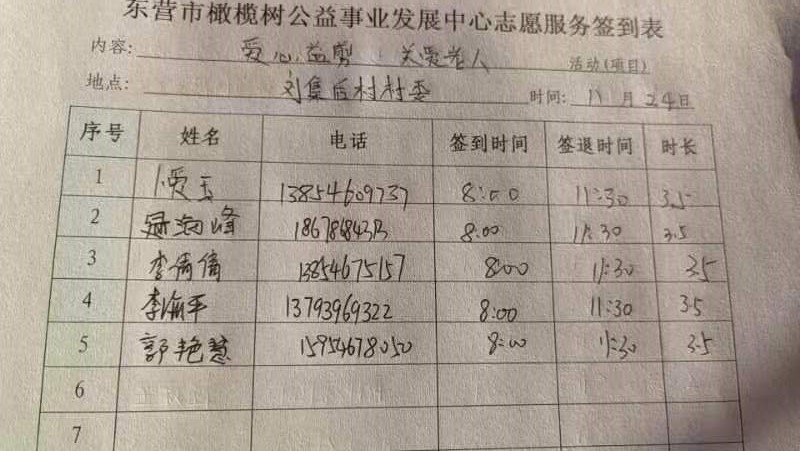 东营市橄榄树公益事业发展中心志愿服务签到表
内容: 爱心益剪 关爱老人 活动(项目)
地点: 刘集后村村委 时间: 11月24日
序号 姓名 电话 签到时间 签退时间 时长
1 13854609737 8:00 11:30 3.5
2 8:00 11:30 3.5
3 李倩倩 13854675157 8:00 11:30 3.5
4 13793969322 8:00 11:30 3.5
5 郭艳慧 15954678050 8:00 11:30 3.5
6
7